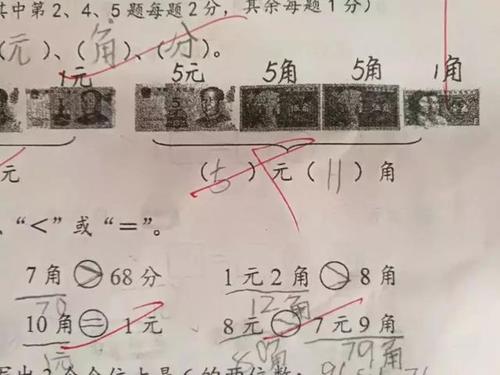 其中第2、4、5题每题2分，其余每题1分）
（元）、（角）、（分）。
1元 5元 5角 5角 1角
元 （ ）元（11）角
、“<”或“=”。
7角>68分 1元2角>8角
70 12角
10角=1元 8元>7元9角
1元 角 79角
写出2个个位上是6的两位数：